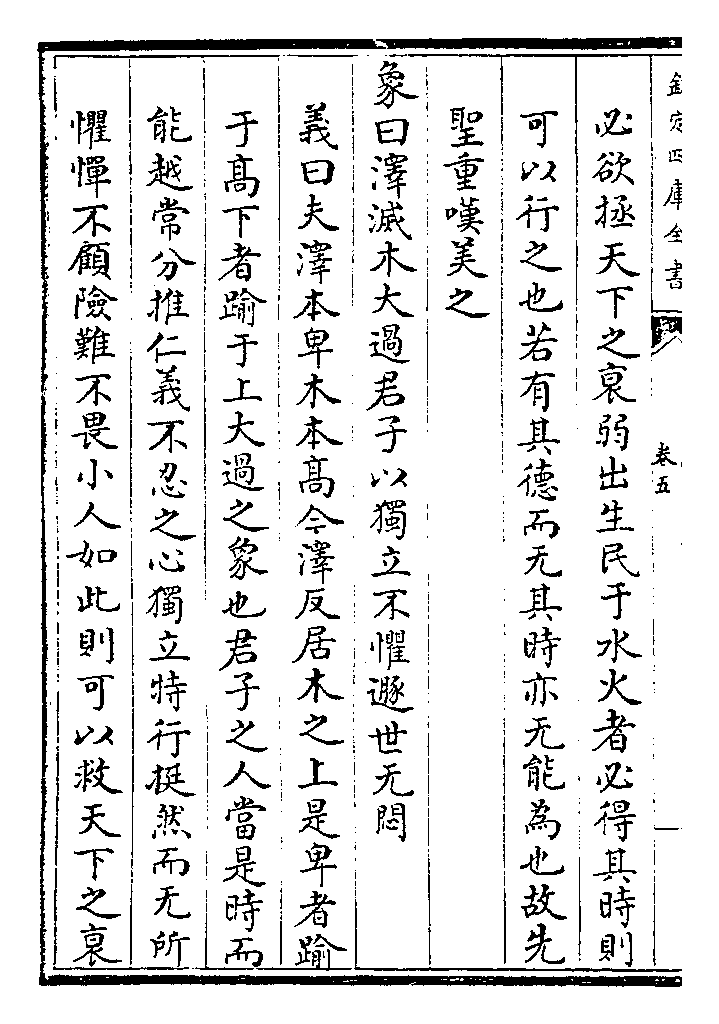 欽定四庫全書
卷五
必欲拯天下之衰弱出生民于水火者必得其時則
可以行之也若有其德而无其時亦无能為也故先
聖重嘆美之
象曰澤滅木大過君子以獨立不懼遯世无悶
義曰夫澤本卑木本高今澤反居木之上是卑者踰
于高下者踰于上大過之象也君子之人當是時而
能越常分推仁義不忍之心獨立特行挺然而无所
懼憚不顧險難不畏小人如此則可以救天下之衰